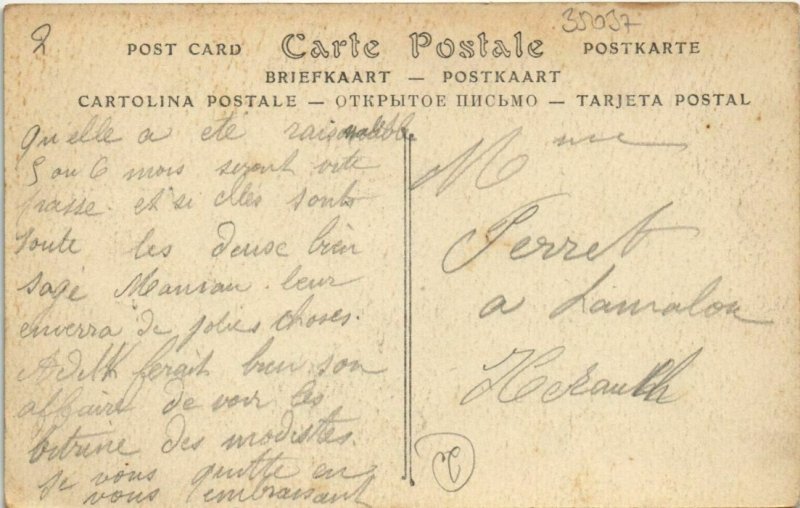 2
35037
POST CARD Carte Postale POSTKARTE
BRIEFKAART — POSTKAART
CARTOLINA POSTALE — ОТКРЫТОЕ ПИСЬМО — TARJETA POSTAL
Qu elle a eté raisonable
5 ou 6 mois seront vite
passe. et si elles sont
toute les deuse bien
sage Maman leur
enverra de jolies choses.
ferait bien son
affaire de voir les
vitrine des modistes.
Je vous quitte en
vous embrassant
Mme
Perret
a Lamalou
Herault